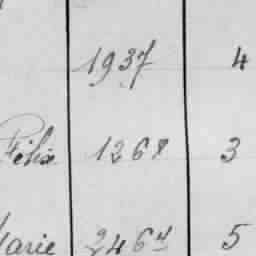 1937 4
Félix 1268 3
Marie 2464 5